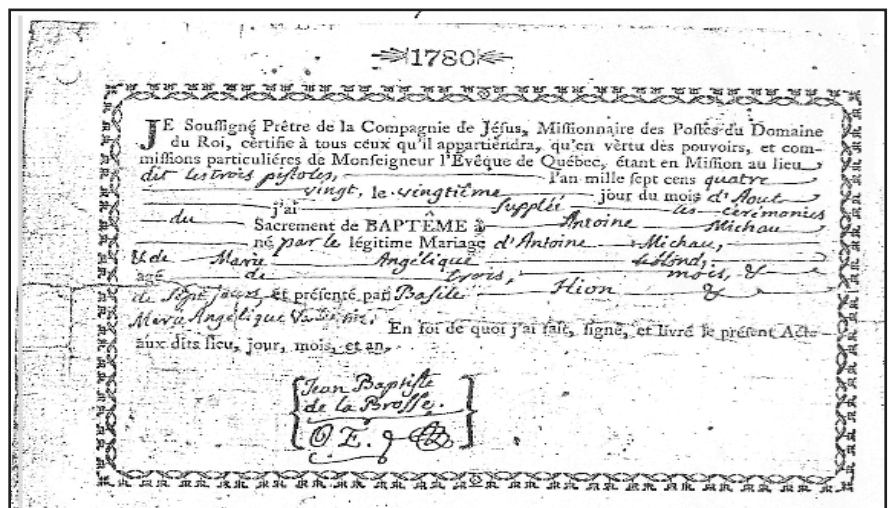 1780
JE Soussigné Prêtre de la Compagnie de Jésus, Missionnaire des Postes du Domaine
du Roi, certifie à tous ceux qu'il appartiendra, qu'en vertu des pouvoirs, et com-
missions particuliéres de Monseigneur l'Evêque de Québec, étant en Mission au lieu
dit les trois pistoles, l'an mille sept cens quatre
vingt, le vingtième jour du mois d'Aout
j'ai Supplée les cérémonies
du Sacrement de BAPTÊME à Antoine Michau
né par le légitime Mariage d'Antoine Michau,
& de Marie Angélique
agé de trois, mois, &
de Sept jours, et présenté par Basile &
Marie Angélique En foi de quoi j'ai fait, signé, et livré le présent Acte
aux dits lieu, jour, mois, et an.
Jean Baptiste
de la Brosse.